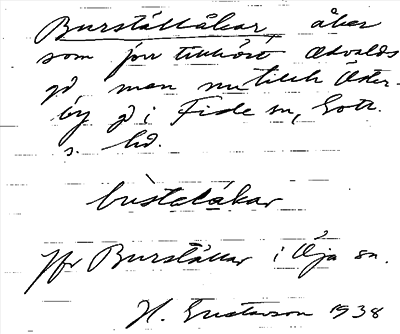 Burställåkar, åker
som förr tillhört Ödvalds
gd, men nu tillh Öster-
by gd i Fide sn, Gotl.
s. hd.
bùstelákar
Jfr Burställar i Öja sn.
H. Gustavson 1938